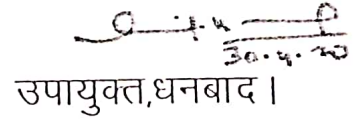 30.4.20
उपायुक्त,धनबाद।